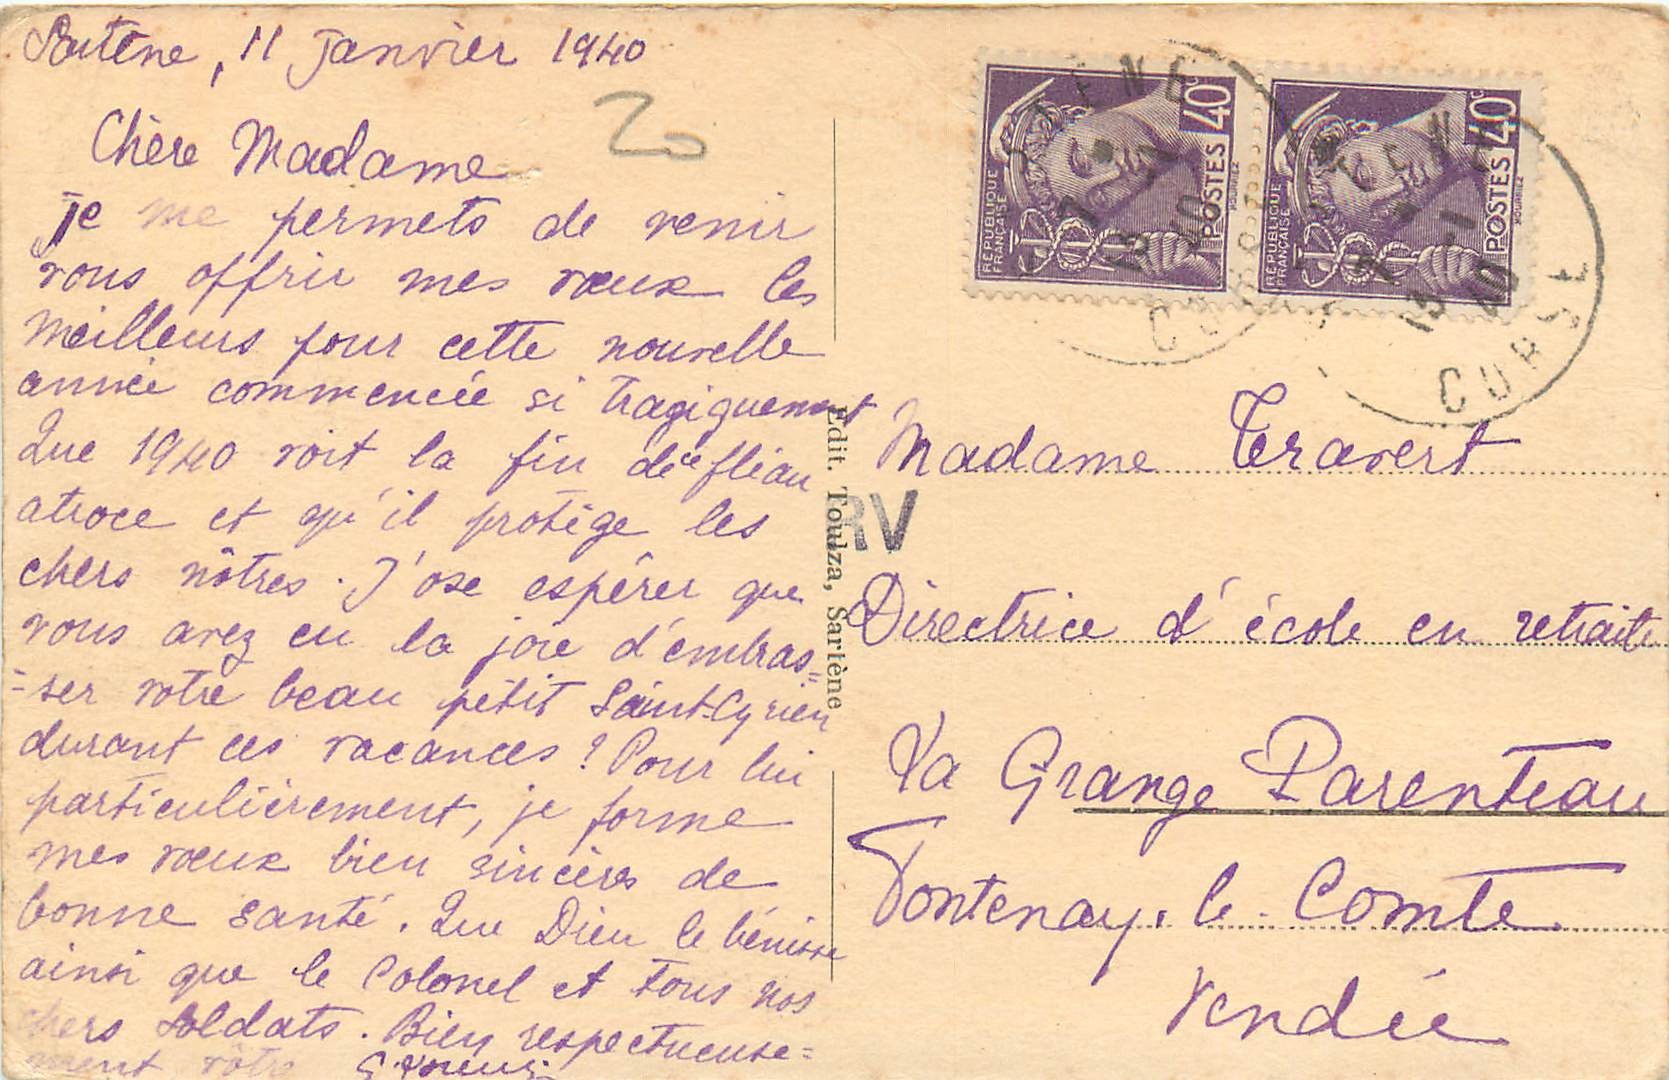 Sartène, 11 Janvier 1940
20
Chère Madame
je me permets de venir
vous offrir mes vœux les
meilleurs pour cette nouvelle
année commencée si tragiquement
Que 1940 voit la fin de ce fléau
atroce et qu'il protège les
chers nôtres. J'ose espérer que
vous avez eu la joie d'embras=
=ser votre beau petit Saint-Cyrien
durant ces vacances? Pour lui
particulièrement, je forme
mes vœux bien sincères de
bonne santé. Que Dieu le bénisse
ainsi que le Colonel et tous nos
chers soldats. Bien respectueuse=
ment vôtre
Edit. Toulza, Sartène
RV
REPUBLIQUE
FRANÇAISE
POSTES
40c
MOURIEZ
REPUBLIQUE
FRANÇAISE
POSTES
40c
MOURIEZ
TENE
13 -1
40
CORSE
TENE
13 -1
40
CORSE
Madame Travert
Directrice d'école en retraite
La Grange Parenteau
Fontenay-le-Comte
Vendée